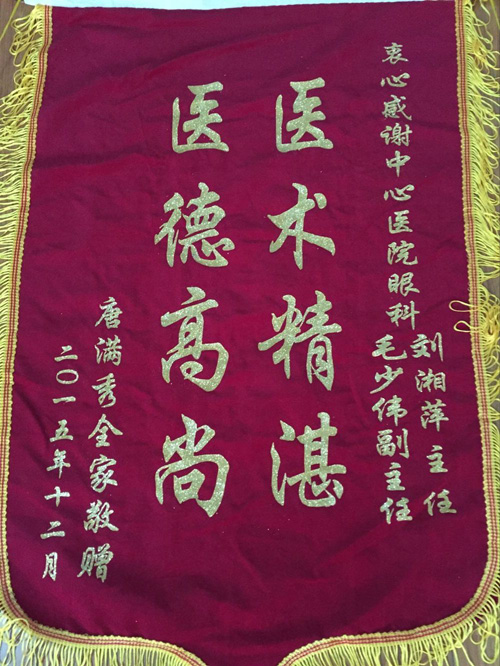 衷心感谢中心医院眼科
刘湘萍主任
毛少伟副主任
医术精湛
医德高尚
唐满秀全家敬赠
二〇一五年十二月